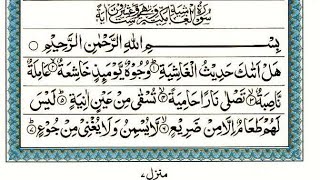 سُوْرَةُ الْغَاشِيَةِ مَكِّيَّةٌ
بِسْمِ اللهِ الرَّحْمٰنِ الرَّحِيْمِ
هَلْ اَتٰىكَ حَدِيْثُ الْغَاشِيَةِ ۝۱ وُجُوْهٌ يَّوْمَىِٕذٍ خَاشِعَةٌ ۝۲ عَامِلَةٌ
نَّاصِبَةٌ ۝۳ تَصْلٰى نَارًا حَامِيَةً ۝۴ تُسْقٰى مِنْ عَيْنٍ اٰنِيَةٍ ۝۵ لَيْسَ
لَهُمْ طَعَامٌ اِلَّا مِنْ ضَرِيْعٍ ۝۶ لَّا يُسْمِنُ وَلَا يُغْنِيْ مِنْ جُوْعٍ ۝۷
منزل ۷